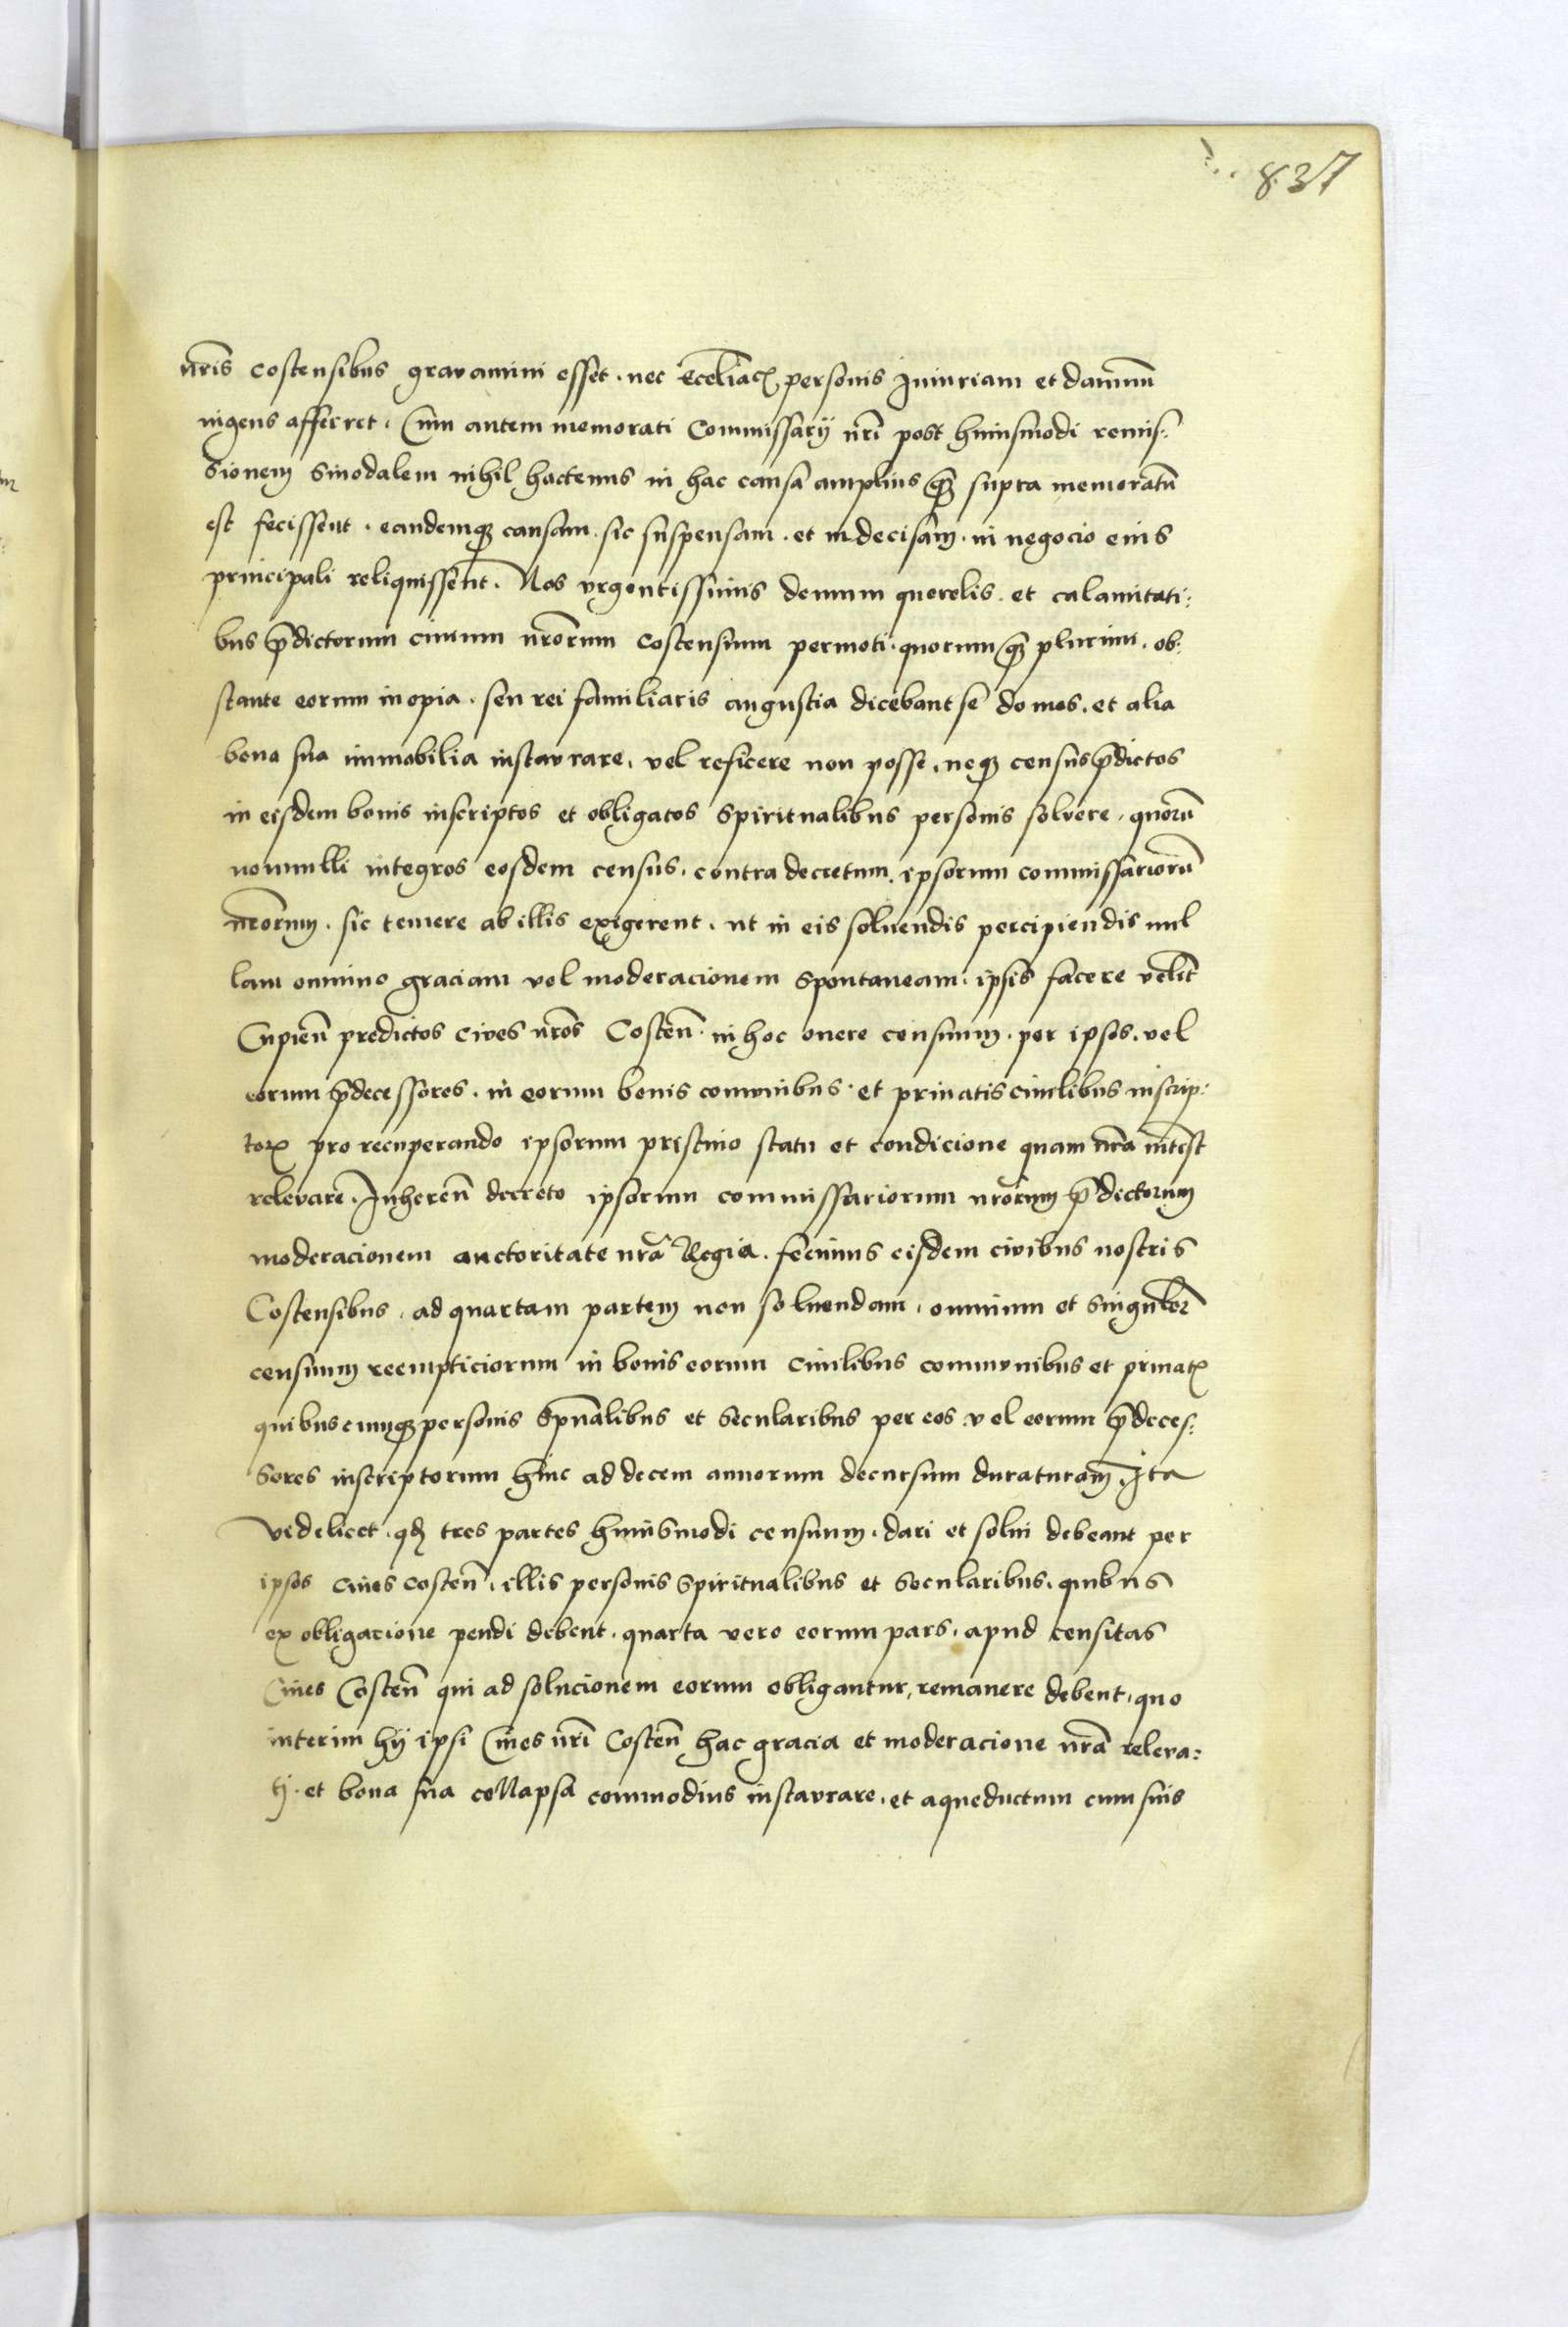 837
nr̃is costensibus gravamini esset · nec Eccl̃iac personis Iniuriam et damnũ
ingens afferret · Cum autem memorati Commissarij nr̃i post huiusmodi remis:
sionem sinodalem nihil hactenus in hac causa amplius q̃ supra memoratũ
est fecissent · eandemq; causam · sic suspensam · et indecisam · in negocio eius
principali reliquissent. Nos vrgentissimis demum querelis · et calamitati:
bus p̃dictorum ciuium nr̃orum costensium permoti · quorum q̃ plurimi · ob:
stante eorum inopia · seu rei familiaris angustia dicebant se domos · et alia
bona sua immobilia instavrare · vel reficere non posse · neq; census p̃dictos
in eisdem bonis inscriptos et obligatos spiritualibus personis solvere · quorũ
nonnulli integros eosdem census · contra decretum · ipsorum commissariorũ
nr̃orum · sic temere ab illis exigerent · ut in eis soluendis percipiendis nul
lam omnino graciam vel moderacionem spontaneam · ipsis facere velĩt
Cupien̄ predictos cives nr̃os Costen̄ · in hoc onere censuum · per ipsos · vel
eorum p̃decessores · in eorum bonis comvnibus · et priuatis ciuilibus inscrip:
tor pro recuperando ipsorum pristino statu et condicione quam nr̃a int̃est
relevare · Inheren̄ decreto ipsorum commissariorum nr̃orum p̃dictorum
moderacionem auctoritate nr̃a Regia · fecimus eisdem civibus nostris
Costensibus · ad quartam partem non soluendam · omnium et singulor̃
censuum reempticiorum in bonis eorum ciuilibus commvnibus et priuat
quibuscumq; personis sp̃ualibus et secularibus per eos vel eorum p̃deces:
sores inscriptorum hinc ad decem annorum decursum duraturam̃ · Ita
videlicet · qd tres partes huiusmodi censuum · dari et solui debeant per
ipsos ciues costen̄ · illis personis spiritualibus et secularibus · quibus
ex obligacione pendi debent · quarta vero eorum pars · apud censitas
Ciues Costen̄ qui ad solucionem eorum obligantur, remanere debent · quo
interim hij ipsi Ciues nr̃i Costen̄ hac gracia et moderacione nr̃a releva:
tj · et bona sua collapsa commodius instavrare · et aqueductum cum suis